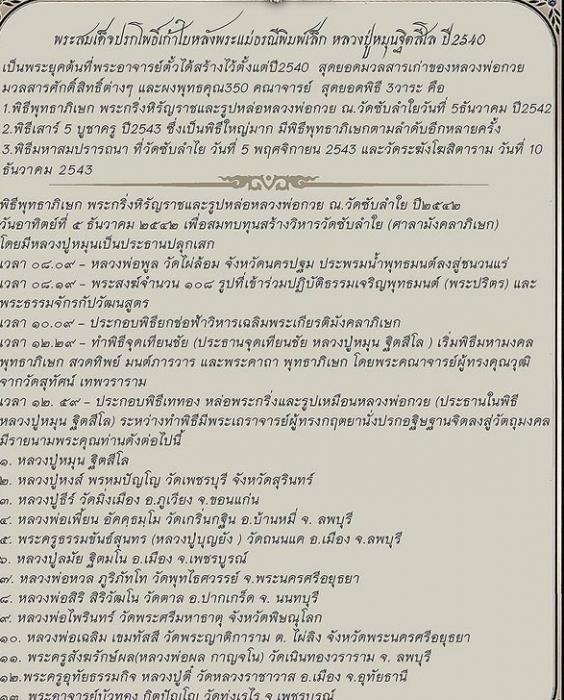 พระสมเด็จปรกโพธิ์เก้าใบหลังพระแม่ธรณีพิมพ์เล็ก หลวงปู่หมุนฐิตสีโล ปี2540
เป็นพระยุคต้นที่พระอาจารย์ตั้วได้สร้างไว้ตั้งแต่ปี2540 สุดยอดมวลสารเก่าของหลวงพ่อกวย
มวลสารศักดิ์สิทธิ์ต่างๆ และผงพุทธคุณ350 คณาจารย์ สุดยอดพิธี 3วาระ คือ
1.พิธีพุทธาภิเษก พระกริ่งหิรัญราชและรูปหล่อหลวงพ่อกวย ณ.วัดซับลำใยวันที่ 5ธันวาคม ปี2542
2.พิธีเสาร์ 5 บูชาครู ปี2543 ซึ่งเป็นพิธีใหญ่มาก มีพิธีพุทธาภิเษกตามลำดับอีกหลายครั้ง
3.พิธีมหาสมปรารถนา ที่วัดซับลำใย วันที่ 5 พฤศจิกายน 2543 และวัดระฆังโฆสิตาราม วันที่ 10
ธันวาคม 2543
พิธีพุทธาภิเษก พระกริ่งหิรัญราชและรูปหล่อหลวงพ่อกวย ณ.วัดซับลำใย ปี๒๕๔๒
วันอาทิตย์ที่ ๕ ธันวาคม ๒๕๔๒ เพื่อสมทบทุนสร้างวิหารวัดซับลำใย (ศาลามังคลาภิเษก)
โดยมีหลวงปู่หมุนเป็นประธานปลุกเสก
เวลา ๐๘.๐๙ – หลวงพ่อพูล วัดไผ่ล้อม จังหวัดนครปฐม ประพรมน้ำพุทธมนต์ลงสู่ชนวนแร่
เวลา ๐๘.๑๙ – พระสงฆ์จำนวน ๑๐๘ รูปที่เข้าร่วมปฏิบัติธรรมเจริญพุทธมนต์ (พระปริตร) และ
พระธรรมจักรกัปวัฒนสูตร
เวลา ๑๐.๐๙ – ประกอบพิธียกช่อฟ้าวิหารเฉลิมพระเกียรติมังคลาภิเษก
เวลา ๑๒.๒๙ – ทำพิธีจุดเทียนชัย (ประธานจุดเทียนชัย หลวงปู่หมุน ฐิตสีโล ) เริ่มพิธีมหามงคล
พุทธาภิเษก สวดทิพย์ มนต์ภาวาร และพระคาถา พุทธาภิเษก โดยพระคณาจารย์ผู้ทรงคุณวุฒิ
จากวัดสุทัศน์ เทพวราราม
เวลา ๑๒. ๕๙ – ประกอบพิธีเททอง หล่อพระกริ่งและรูปเหมือนหลวงพ่อกวย (ประธานในพิธี
หลวงปู่หมุน ฐิตสีโล) ระหว่างทำพิธีมีพระเถราจารย์ผู้ทรงกฤตยานั่งปรกอฐิษฐานจิตลงสู่วัตถุมงคล
มีรายนามพระคุณท่านดังต่อไปนี้
๑. หลวงปู่หมุน ฐิตสีโล
๒. หลวงปู่หงส์ พรหมปัญโญ วัดเพชรบุรี จังหวัดสุรินทร์
๓. หลวงปู่ธีร์ วัดมิ่งเมือง อ.ภูเวียง จ.ขอนแก่น
๔. หลวงพ่อเพี้ยน อัคคธมฺโม วัดเกริ่นกฐิน อ.บ้านหมี่ จ. ลพบุรี
๕. พระครูธรรมขันธ์สุนทร (หลวงปู่บุญยัง ) วัดถนนแค อ.เมือง จ.ลพบุรี
๖. หลวงปู่ลมัย ฐิตมโน อ.เมือง จ.เพชรบูรณ์
๗. หลวงพ่อหวล ภูริภัทโท วัดพุทไธศวรรย์ จ.พระนครศรีอยุธยา
๘. หลวงพ่อสิริ สิริวัฒโน วัดตาล อ.ปากเกร็ด จ. นนทบุรี
๙. หลวงพ่อไพรินทร์ วัดพระศรีมหาธาตุ จังหวัดพิษณุโลก
๑๐. หลวงพ่อเฉลิม เขมทัสสี วัดพระญาติการาม ต. ไผ่ลิง จังหวัดพระนครศรีอยุธยา
๑๑. พระครูสังฆรักษ์ผล(หลวงพ่อผล กาญจโน) วัดเนินทองวราราม จ. ลพบุรี
๑๒.พระครูอุทัยธรรมกิจ หลวงปู่ตี๋ วัดหลวงราชาวาส อ.เมือง จ.อุทัยธานี
๑๓. พระอาจารย์บัวทอง กิตปัญโญ วัดทุ่งเรไร จ.เพชรบูรณ์